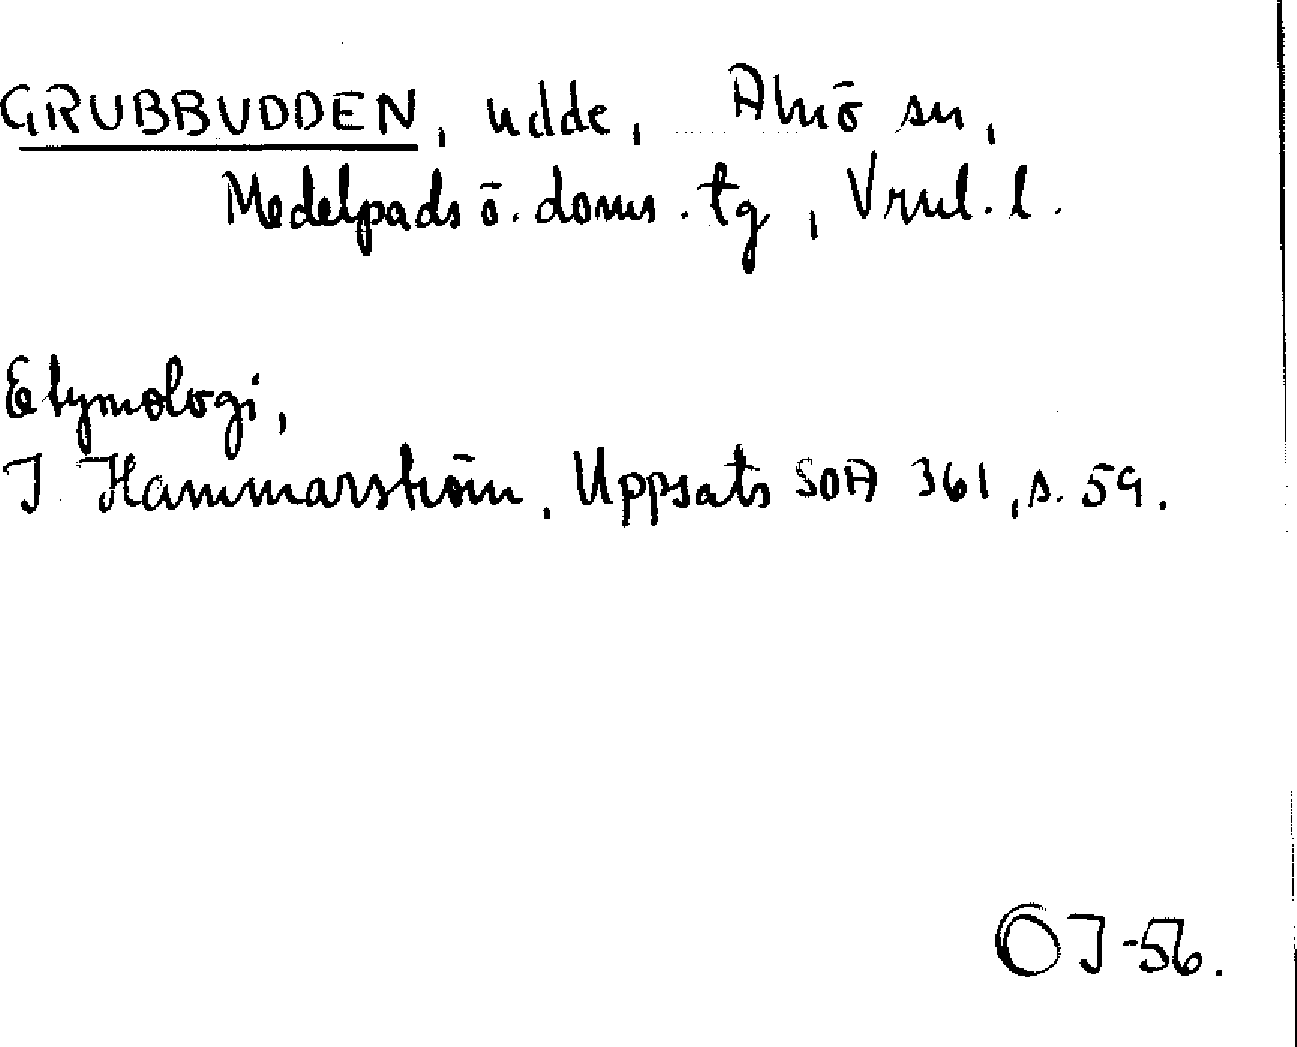 GRUBBUDDEN, udde, Alnö sn,
Medelpads ö. doms. tg, Vrnl. l.
Etymologi,
I Hammarström, Uppsats SOA 361, s. 59.
OJ-56.